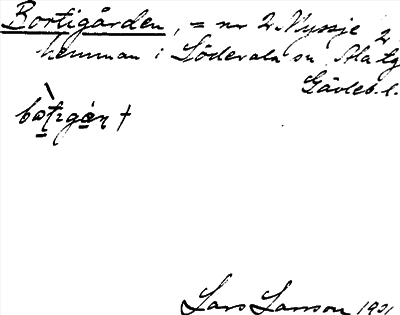 Bortigården, = nr 2 Nyssje 2
hemman i Söderala sn, Ala tg
Gävleb. l.
Lars Larsson 1921